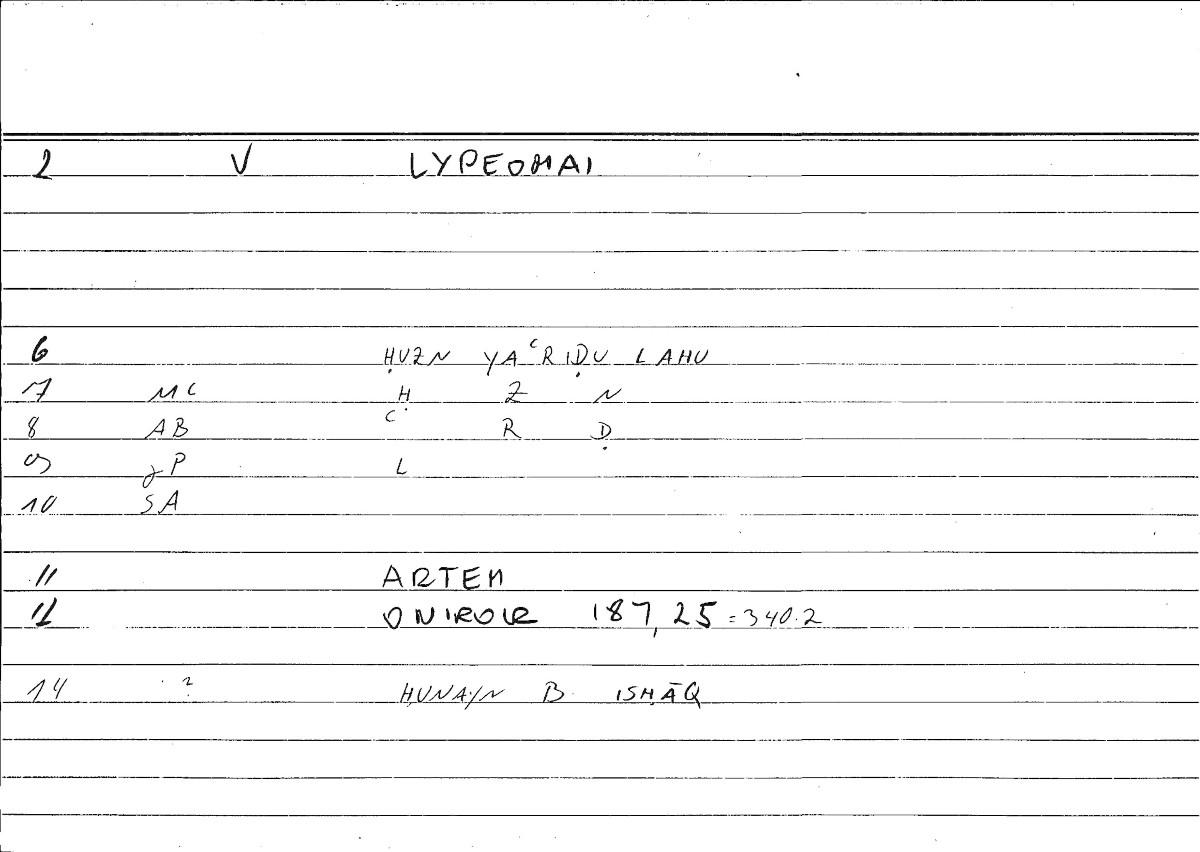 2 V LYPEOMAI
6 ḤUZN YAʿRIḌU LAHU
7 MC Ḥ Z N
8 AB ʿ R Ḍ
9 gP L
10 SA
11 ARTEM
12 ONIROCR 187,25 = 340.2
14 ? ḤUNAYN B ISḤĀQ